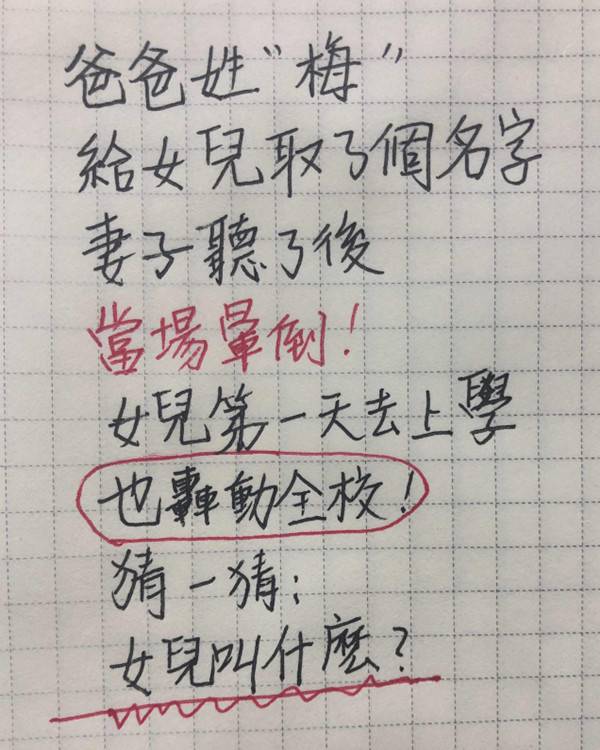 爸爸姓"梅"
給女兒取了個名字
妻子聽了後
當場暈倒!
女兒第一天去上學
也轟動全校!
猜一猜:
女兒叫什麼?